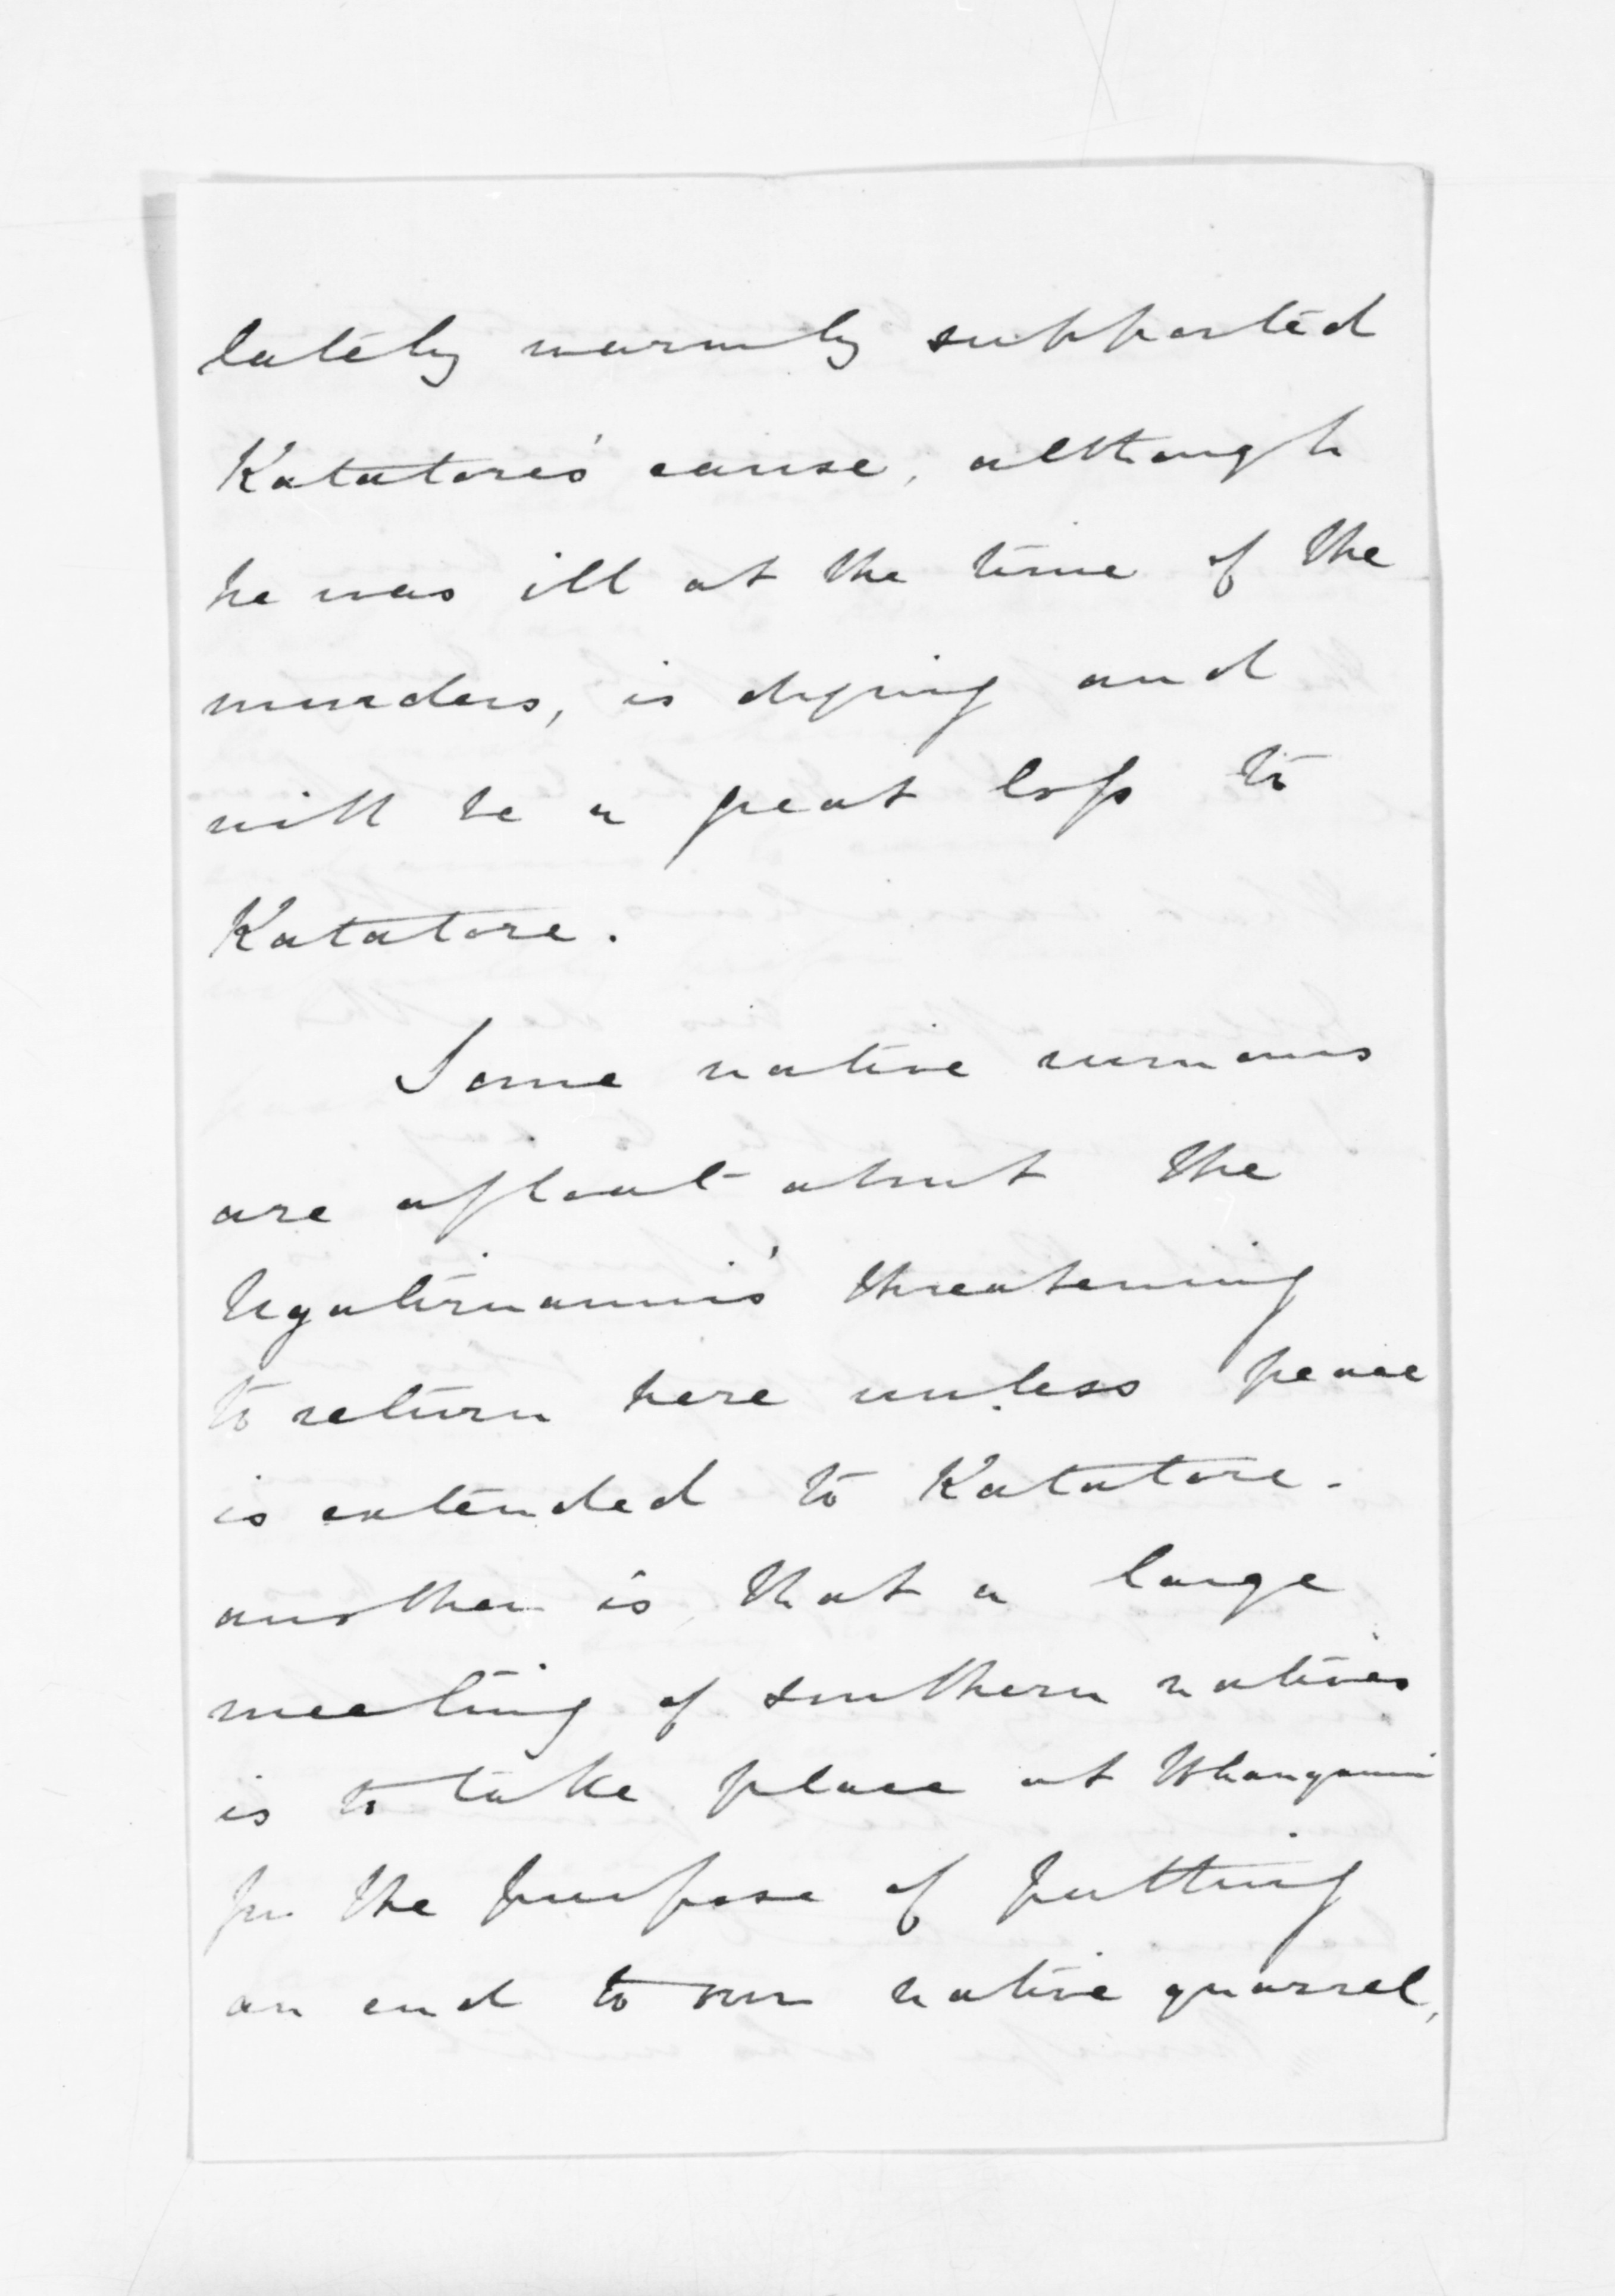 lately warmly supported
Katatore's cause, although
he was ill at the time of the
murders, is dying and
will be a great loss to
Katatore.
Some native rumours
are afloat about the
Ngatiruanui's threatening
to return here unless peace
is extended to Katatore.
another is that a large
meeting of southern natives
is to take place at Whanganui
for the purpose of putting
an end to our native quarrel,